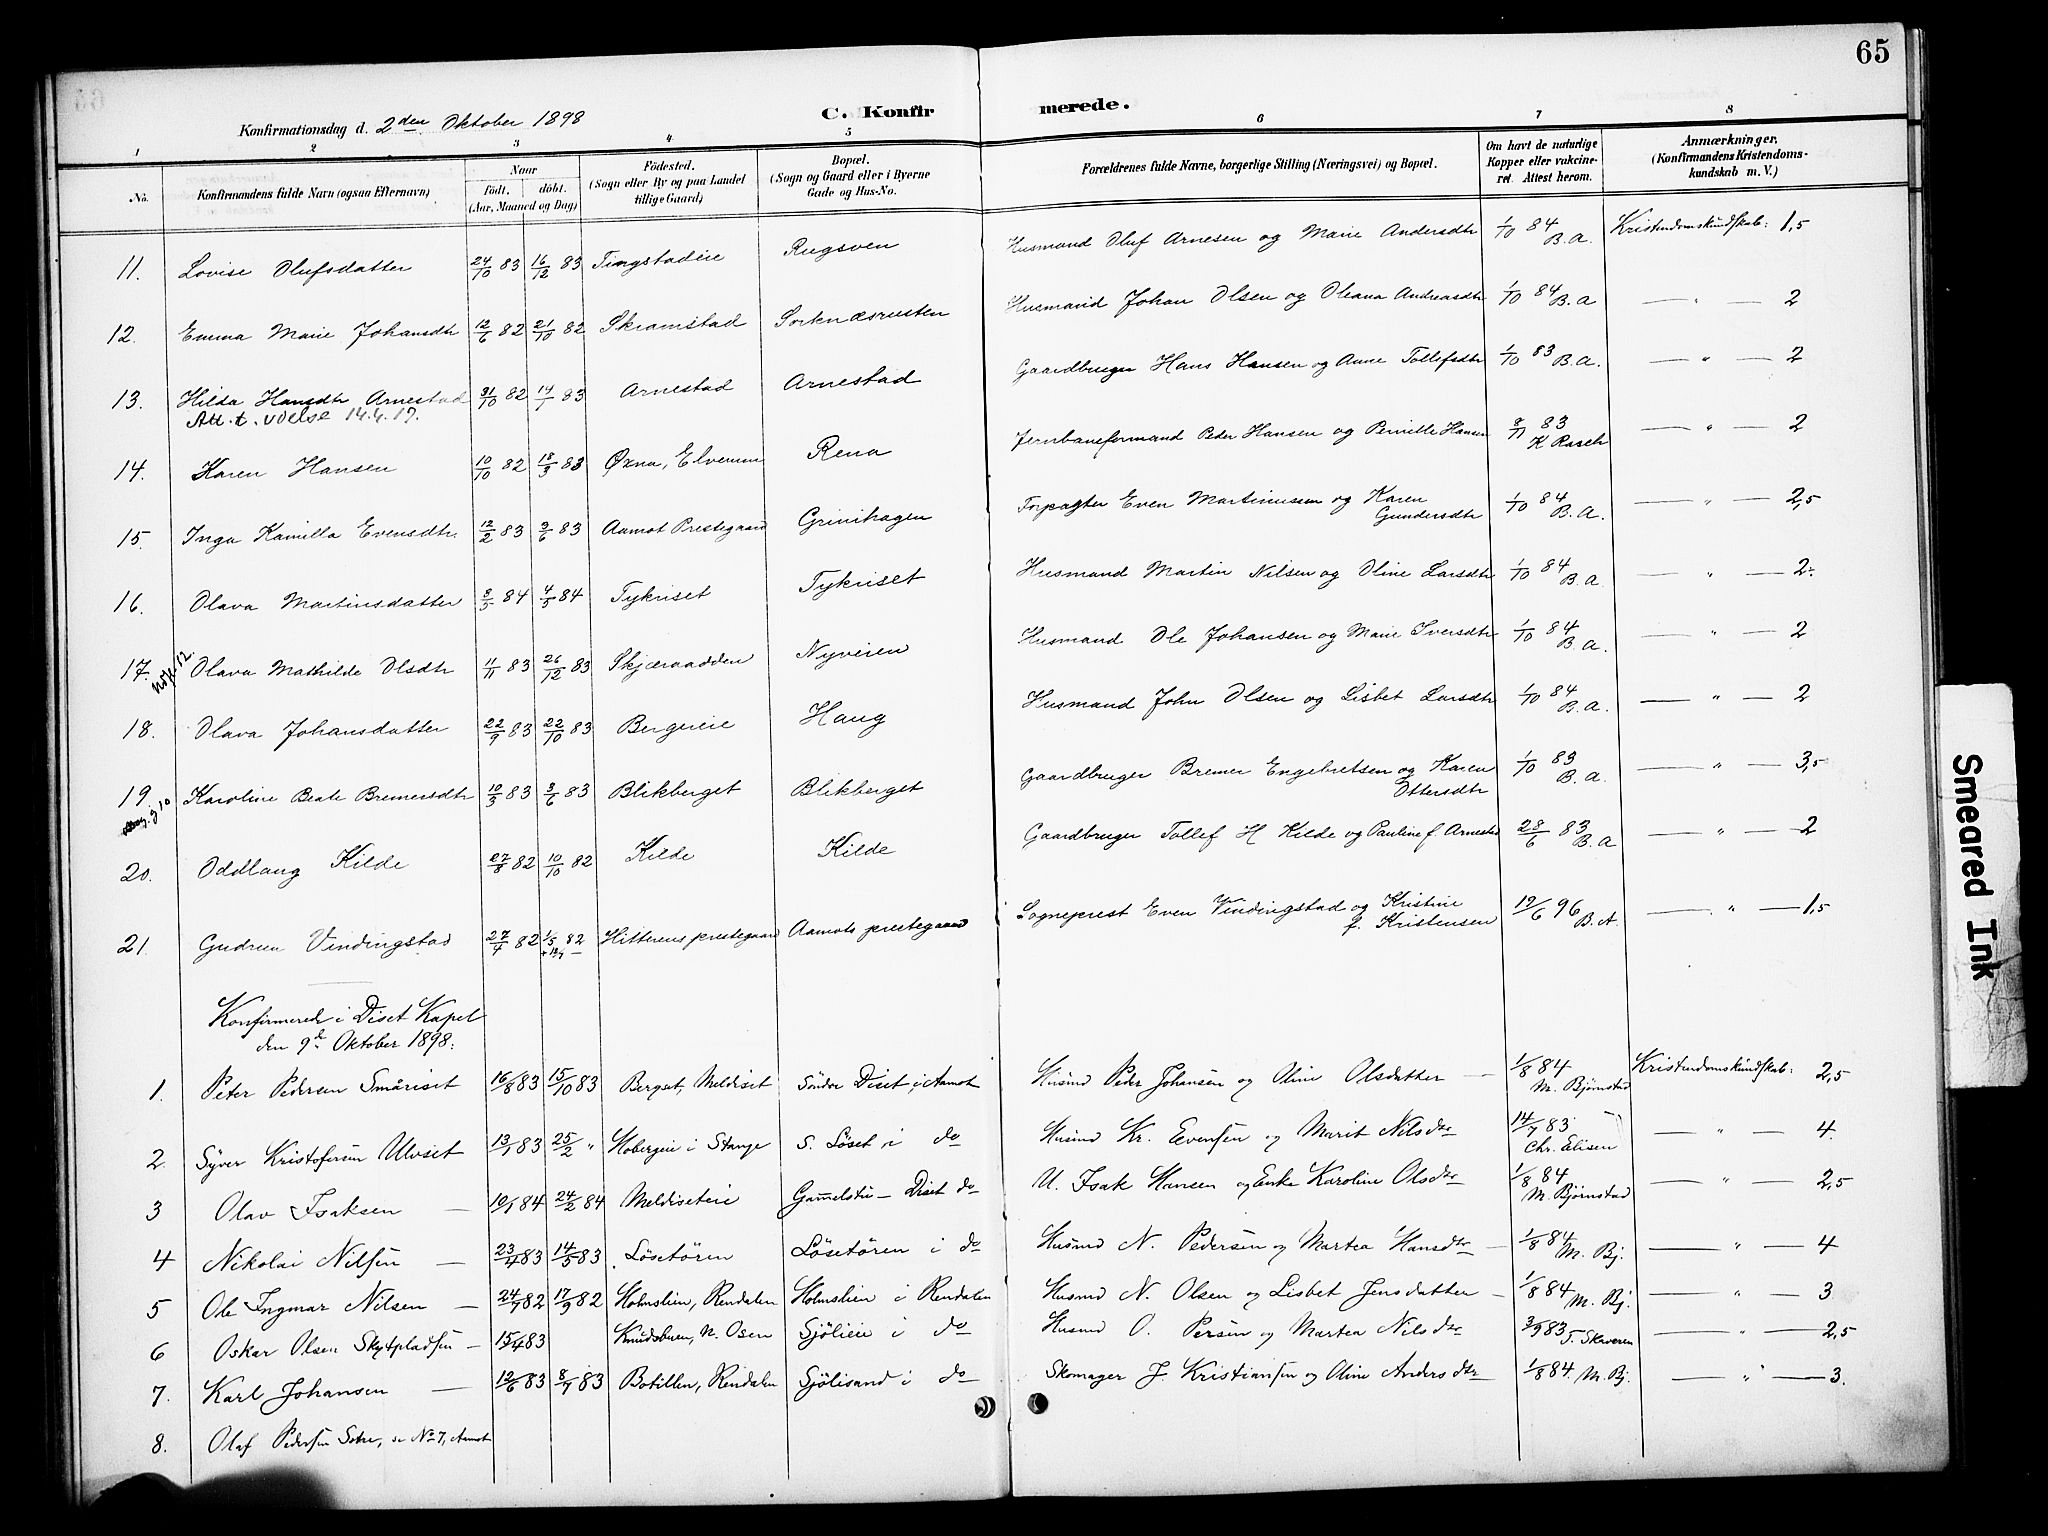 65
Konfirmationsdag d. 2den Oktober 1898 C. Konfirmerede.
1 2 3 4 5 6 7 8
No. Konfirmandens fulde Navn (ogsaa Efternavn) Naar født. døbt. (Aar, Maaned og Dag) Fødested. (Sogn eller By og paa Landet tillige Gaard) Bopæl. (Sogn og Gaard eller i Byerne Gade og Hus-No. Forældrenes fulde Navne, borgerlige Stilling (Næringsvei) og Bopæl. Om havt de naturlige Kopper eller vakcineret. Attest herom. Anmærkninger. (Konfirmandens Kristendomskundskab m. V.)
11. Lovise Olufsdatter 24/10 83 16/12 83 Tingstadeie Rugsveen Husmand Oluf Arnesen og Marie Andersdtr 1/10 84 B.A. Kristendomskundskab: 1,5
12. Emma Marie Johansdtr 12/6 82 21/10 82 Skramstad Sorknæsrusten Husmand Johan Olsen og Oleana Andreasdtr 1/10 84 B.A — " — 2
13. Hilda Hansdtr Arnestad 31/10 82 14/1 83 Arnestad Arnestad Gaardbruger Hans Hansen og Anne Tollefsdtr 1/10 83 B.A. — " — 2
Att. t. vielse 14.4.17.
14. Karen Hansen 10/10 82 18/3 83 Øxna, Elverum Rena Jernbaneformand Peder Hansen og Pernille Hansen 8/11 83 K Rasch — " — 2
15. Inga Kamilla Evensdtr. 12/2 83 3/6 83 Aamot Prestegaard Grinihagen Forpagter Even Martinussen og Karen Gundersdtr 1/10 84 B.A. — " — 2,5
16. Olava Martinsdatter 8/3 84 4/5 84 Tykriset Tykriset Husmand Martin Nilsen og Oline Larsdtr 1/10 84 B.A. — " — 2
17. Olava Mathilde Olsdtr 11/11 83 26/12 83 Skjæraadden Nyveien Husmand Ole Johansen og Marie Iversdtr 1/10 84 B.A. — " — 2
18. Olava Johansdatter 22/9 83 22/10 83 Bergereie Haug Husmand John Olsen og Lisbet Larsdtr 1/10 84 B.A. — " — 2
19. Karoline Beate Bremersdtr 10/3 83 3/6 83 Blikberget Blikberget Gaardbruger Bremer Engebretsen og Karen Ottersdtr 1/10 83 B.A. — " — 3,5
20. Oddlaug Kilde 27/8 82 10/10 82 Kilde Kilde Gaardbruger Tollef H Kilde og Pauline f. Arnestad 28/6 83 B.A — " — 2
21. Gudrun Vindingstad 27/4 82 1/5 82 Hitterens prestegaard Aamots prestegaard Sogneprest Even Vindingstad og Kristine f. Kristensen 19/6 96 B.A. — " — 1,5
Konfirmerede i Diset Kapel
den 9de Oktober 1898.
1. Peter Pedersen Småriset 16/8 83 15/10 83 Berget, Meldiset Söndre Diset i Aamot Husmd Peder Johansen og Oline Olsdatter — 1/8 84 M. Bjørnstad Kristendomskundskab: 2,5
2. Syver Kristofersen Ulvset 13/1 83 25/2 " Hobergeie i Stange S. Löset i do Husmd Kr. Evensen og Marit Nilsdtr 14/7 83 Chr. Elisen — " — 4.
3 Olav Isaksen — 10/1 84 24/2 84 Meldiseteie Gammelstu - Diset do U. Isak Hansen og Enke Karoline Olsdtr 1/8 84 M. Bjørnstad — " — 2,5
4 Nikolai Nilsen — 23/4 83 14/5 83 Lösetören Lösetören i do Husmd N. Pedersen og Martea Hansdtr — 1/8 84 M. Bj. — " — 4
5 Ole Ingmar Nilsen — 24/7 82 17/9 82 Holmslien, Rendalen Holmslien i Rendalen Husmd N. Olsen og Lisbet Jensdatter — 1/8 84 M. Bj. — " — 3
6 Oskar Olsen Skytpladsen — 15/4 83 Knudsbuen, N. Osen Sjölieie i do Husmd O. Persen og Martea Nilsdtr 3/9 83 S. Skaveren — " — 2,5
7. Karl Johansen — 12/6 83 8/7 83 Botillen, Rendalen Sjölisand i do Skomager J. Kristiansen og Oline Andersdtr 1/8 84. M. Bj. — " — 3.
8. Olaf Pedersen Sætre, se No 7, Aamot
Smeared Ink